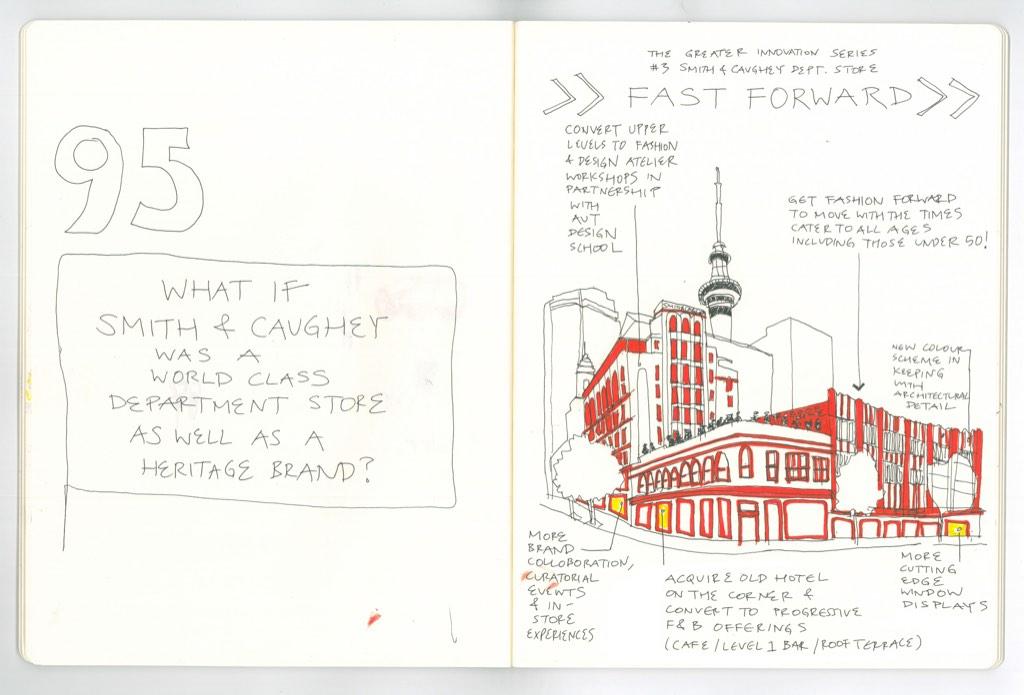 95
WHAT IF
SMITH & CAUGHEY
WAS A
WORLD CLASS
DEPARTMENT STORE
AS WELL AS A
HERITAGE BRAND?
THE GREATER INNOVATION SERIES
#3 SMITH & CAUGHEY DEPT. STORE
>> FAST FORWARD >>
CONVERT UPPER
LEVELS TO FASHION
& DESIGN ATELIER
WORKSHOPS IN
PARTNERSHIP
WITH
AUT
DESIGN
SCHOOL
GET FASHION FORWARD
TO MOVE WITH THE TIMES
CATER TO ALL AGES
INCLUDING THOSE UNDER 50!
NEW COLOUR
SCHEME IN
KEEPING
WITH
ARCHITECTURAL
DETAIL
MORE
BRAND
COLLOBORATION,
CURATORIAL
EVENTS
& IN-
STORE
EXPERIENCES
ACQUIRE OLD HOTEL
ON THE CORNER &
CONVERT TO PROGRESSIVE
F&B OFFERINGS
(CAFE/LEVEL 1 BAR/ROOF TERRACE)
MORE
CUTTING
EDGE
WINDOW
DISPLAYS